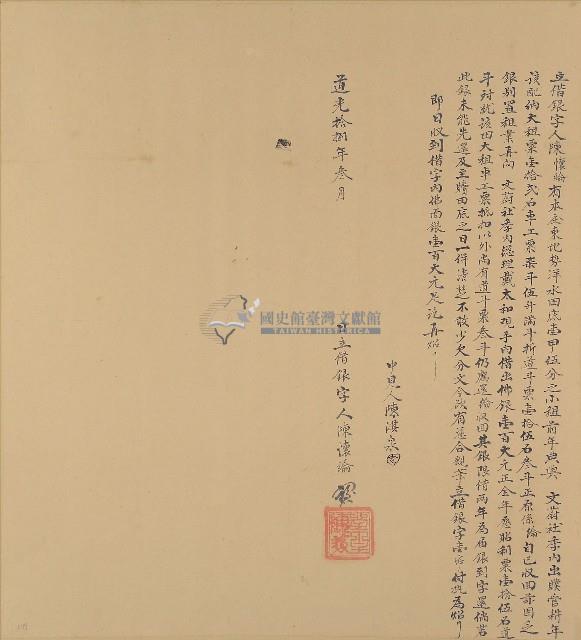 立借銀字人陳懷瑜有承走東北勢洋水田底壹甲伍分之小租前年典與 文蔚社季內出贌管耕年
該配納大租粟壹拾弍石車工粟柒斗伍升滿斗折道斗粟壹拾伍石叁斗正原係瑜自己收回茲因乏
銀別置租業再向 文蔚社季內總理戴太和觀手內借出佛銀壹百大元正全年愿貼利粟壹拾伍石道
斗對就該田大租車工粟抵扣以外尚有道斗粟叁斗仍應還瑜收回其銀限借兩年為屆銀到字還倘若
此銀未能先還及至贖田底之日一併清楚不敢少欠分文今欲有憑合親筆立借銀字壹紙付執為炤
即日收到借字內佛面銀壹百大元足訖再炤
中見人陳淇泉
道光拾捌年叁月 日立借銀字人陳懷瑜
國史館臺灣文獻館
TAIWAN HISTORICA